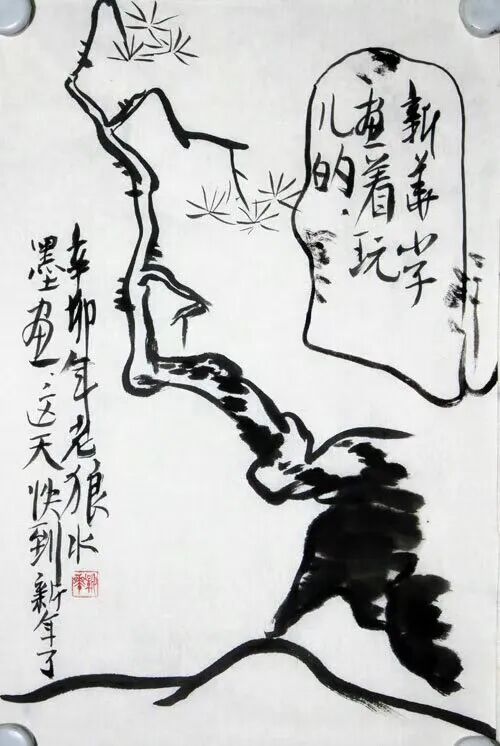 新華小学
画着玩
儿的.
辛卯年老狼水
墨画,这天快到新年了